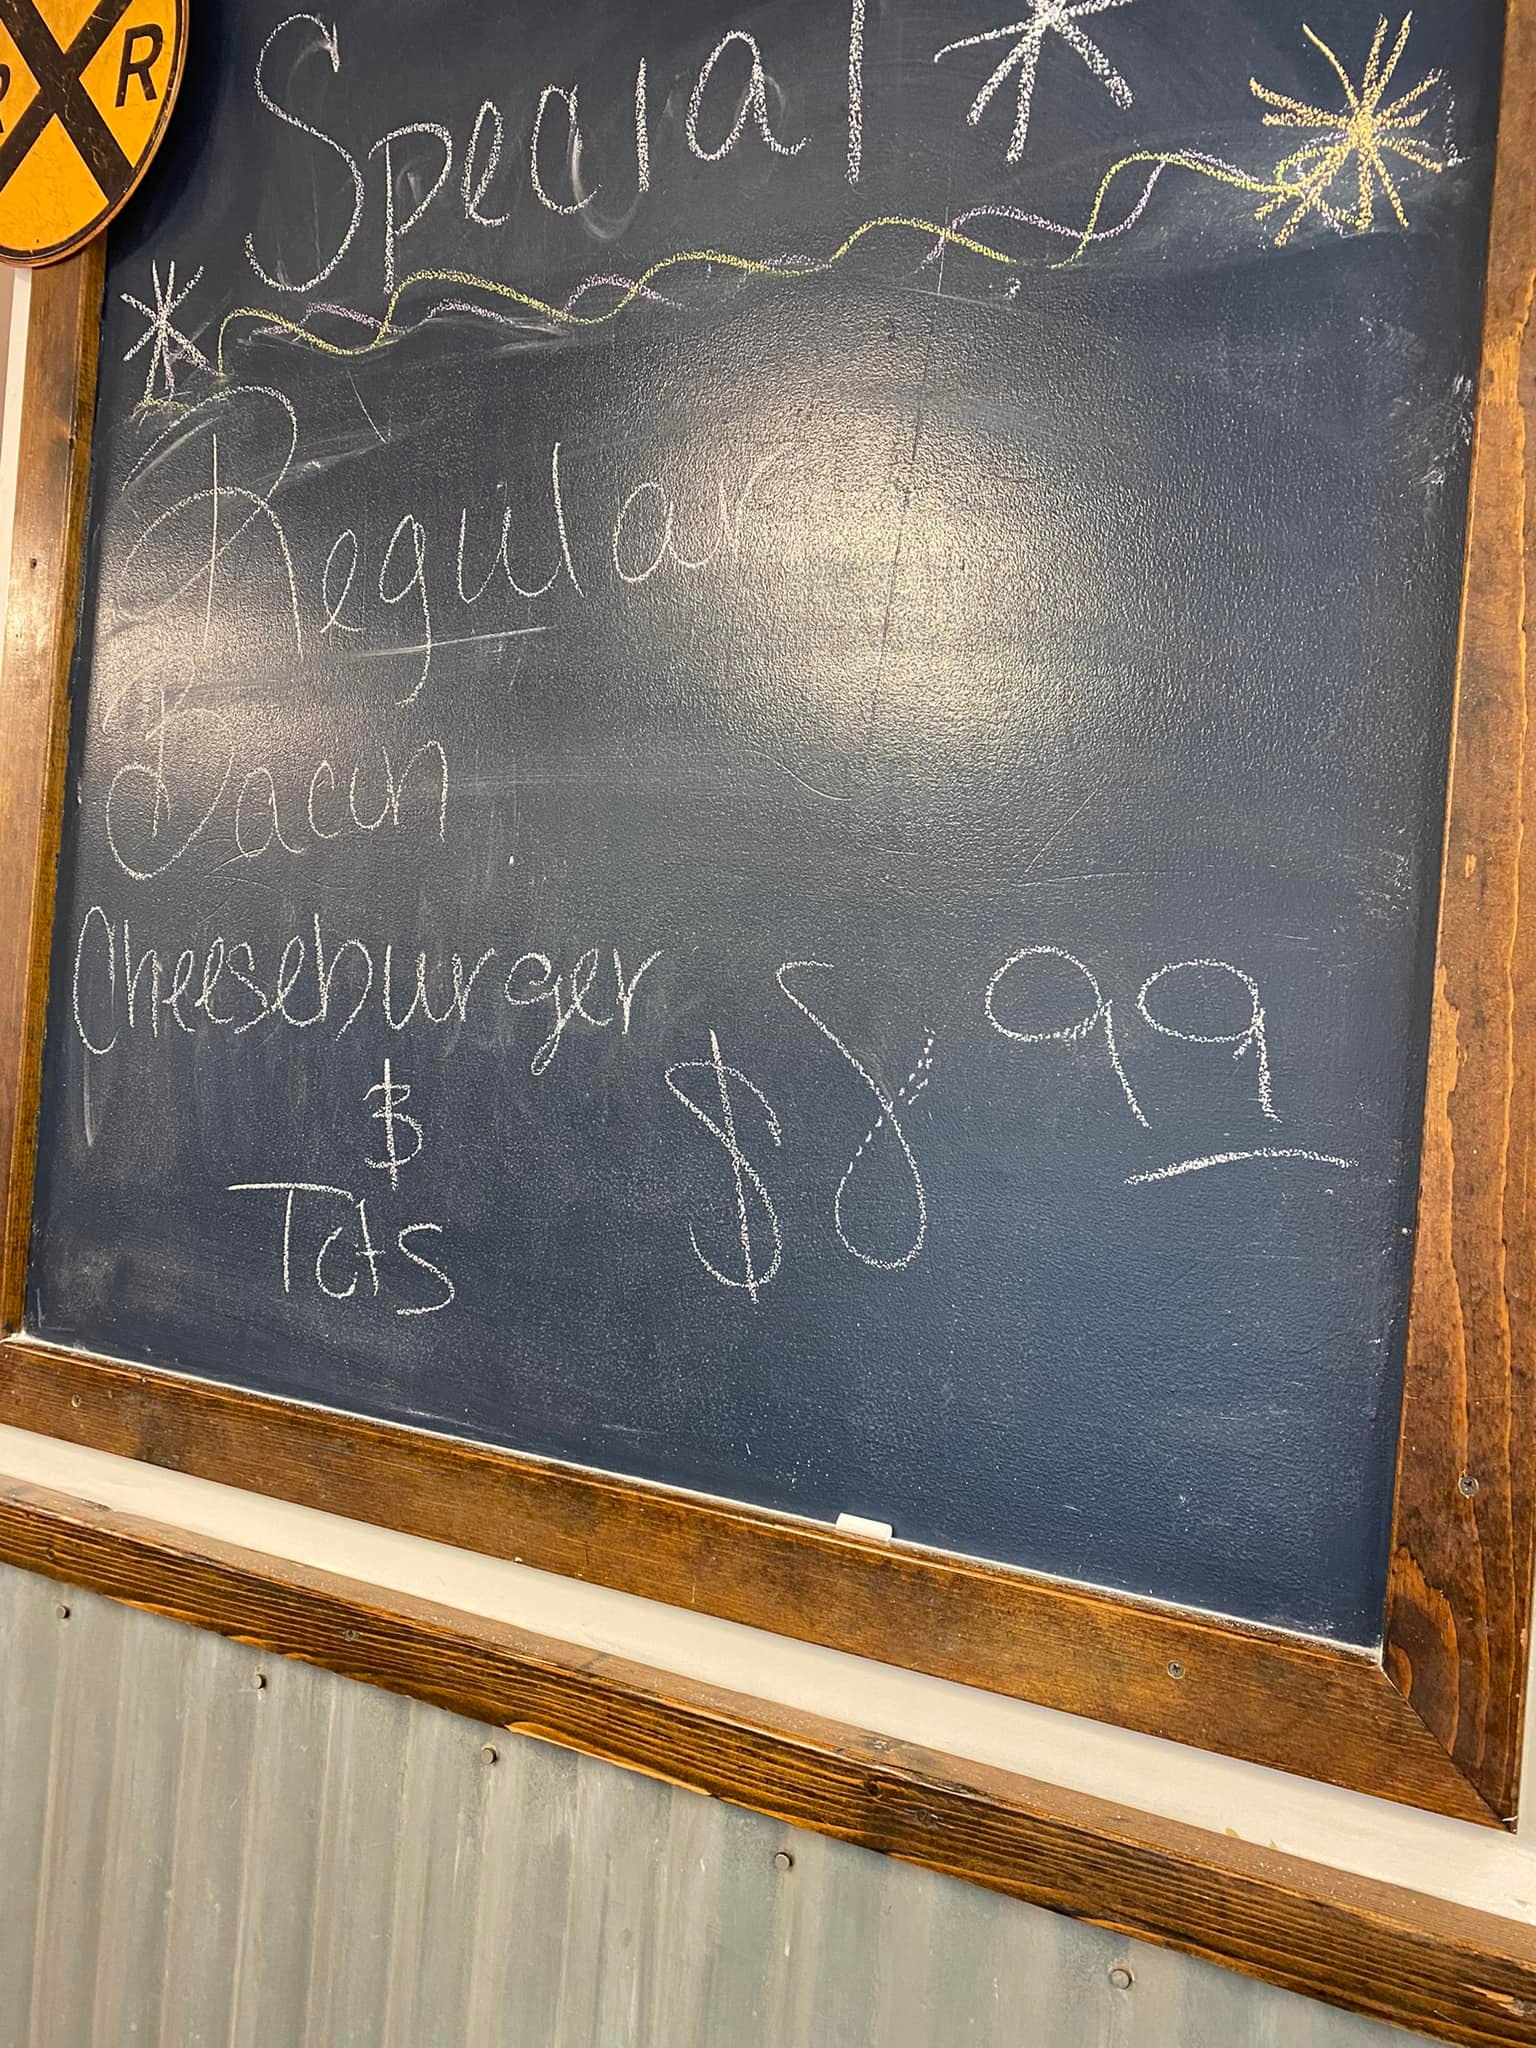 R R
Special *
Regular
Bacon
Cheeseburger
&
Tots
$8.99